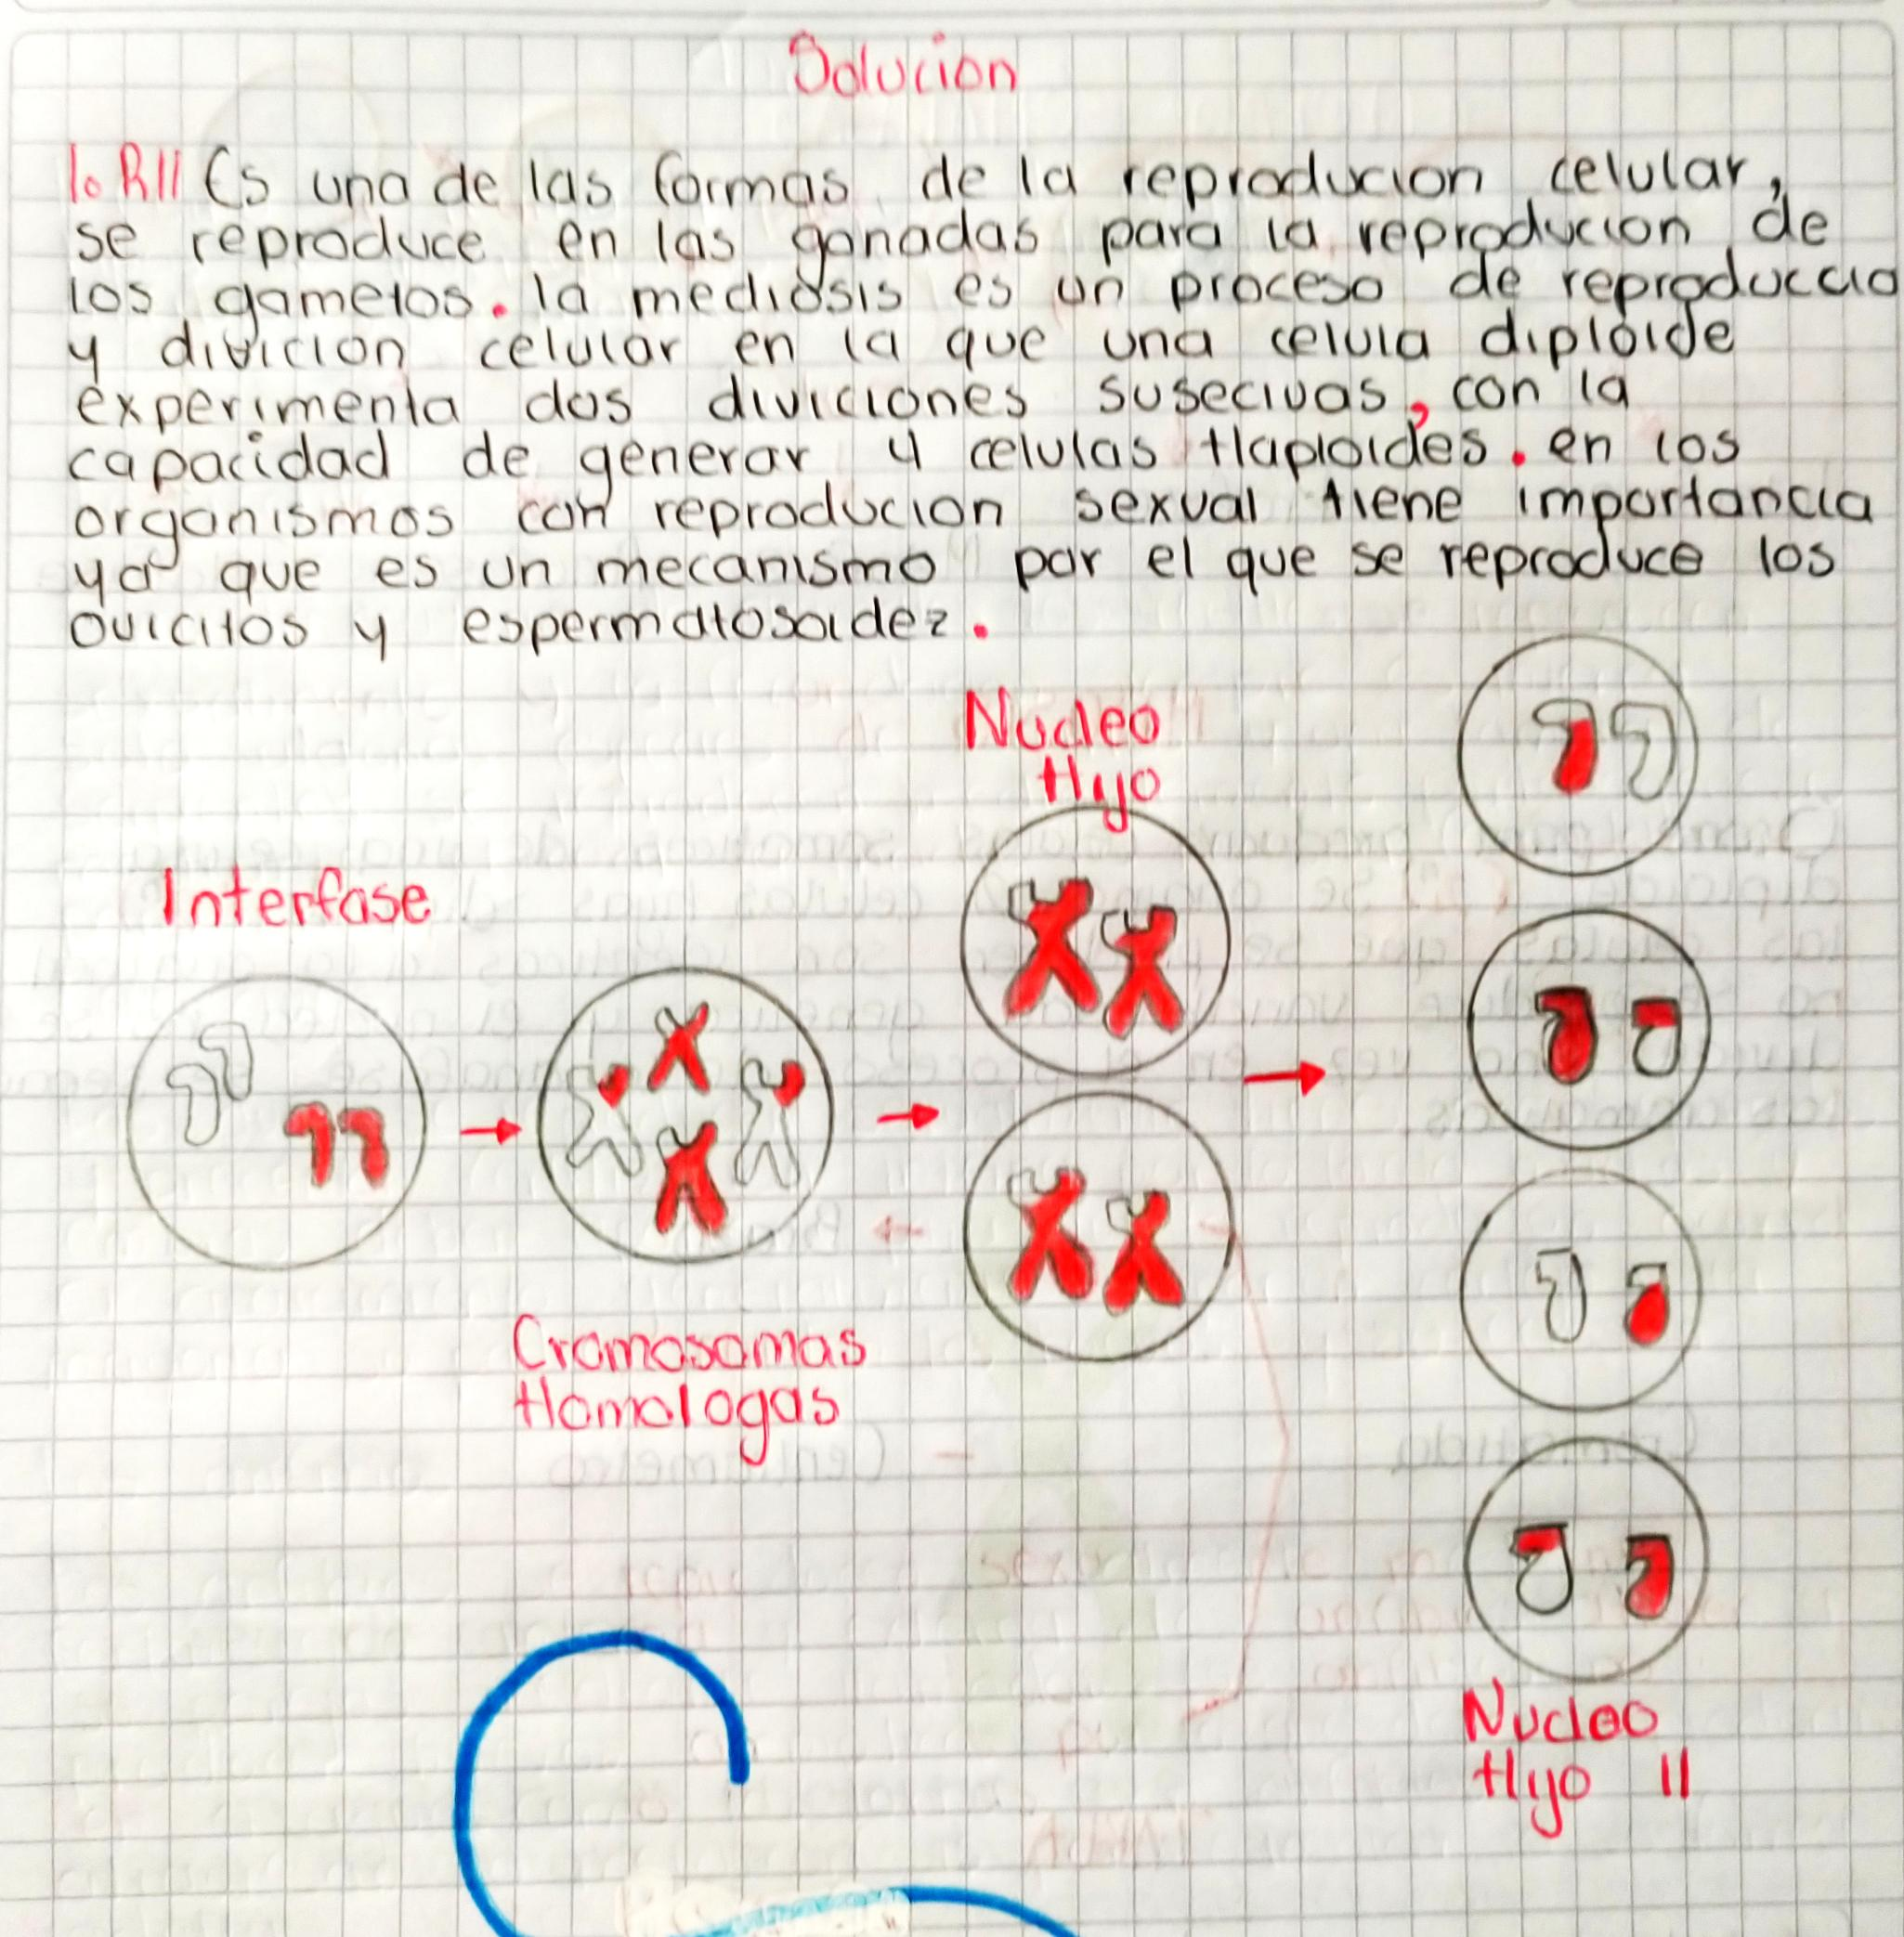 Solucion
1. R// Es una de las formas de la reproducion celular,
se reproduce en las gonadas para la reproducion de
los gametos. la mediosis es un proceso de reproduccio
y divicion celular en la que una celula diploide
experimenta dos diviciones susecivas, con la
capacidad de generar 4 celulas Haploides. en los
organismos con reproducion sexual tiene importancia
ya que es un mecanismo por el que se reproduce los
ovicitos y espermatosoidez.
Nucleo
Hijo
Interfase
Cromosomas
Homologas
Nucleo
Hijo II